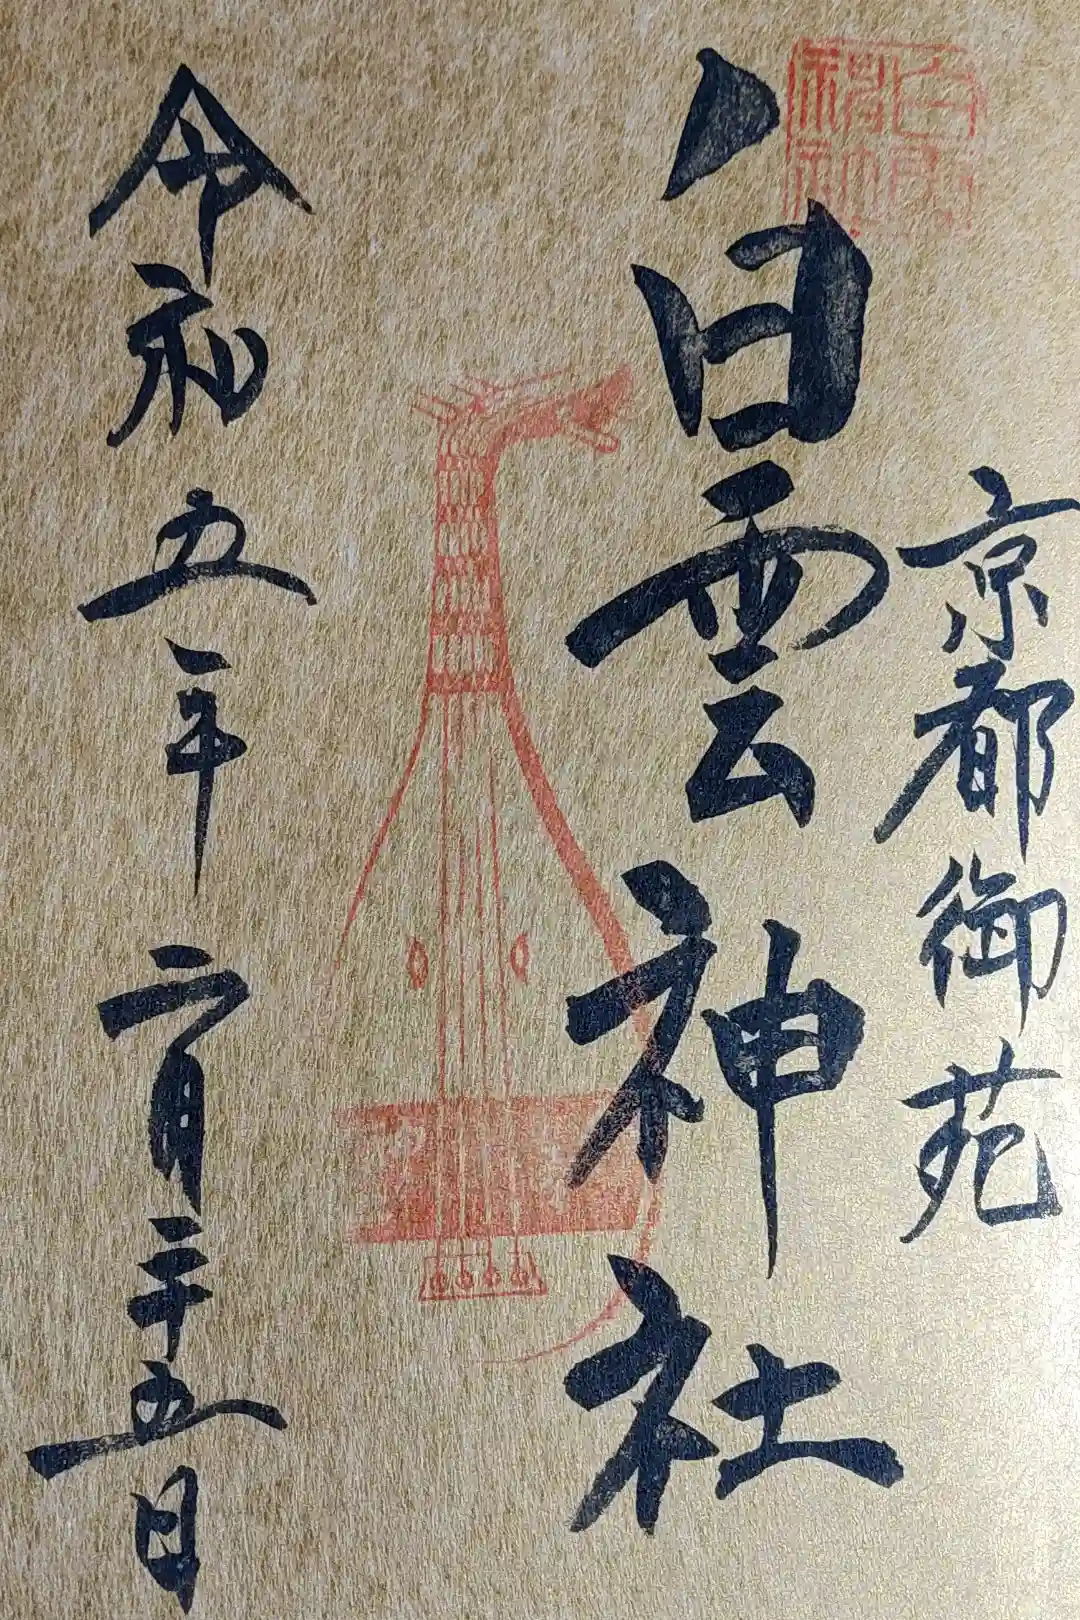 京都御苑
白雲神社
令和五年二月二十五日